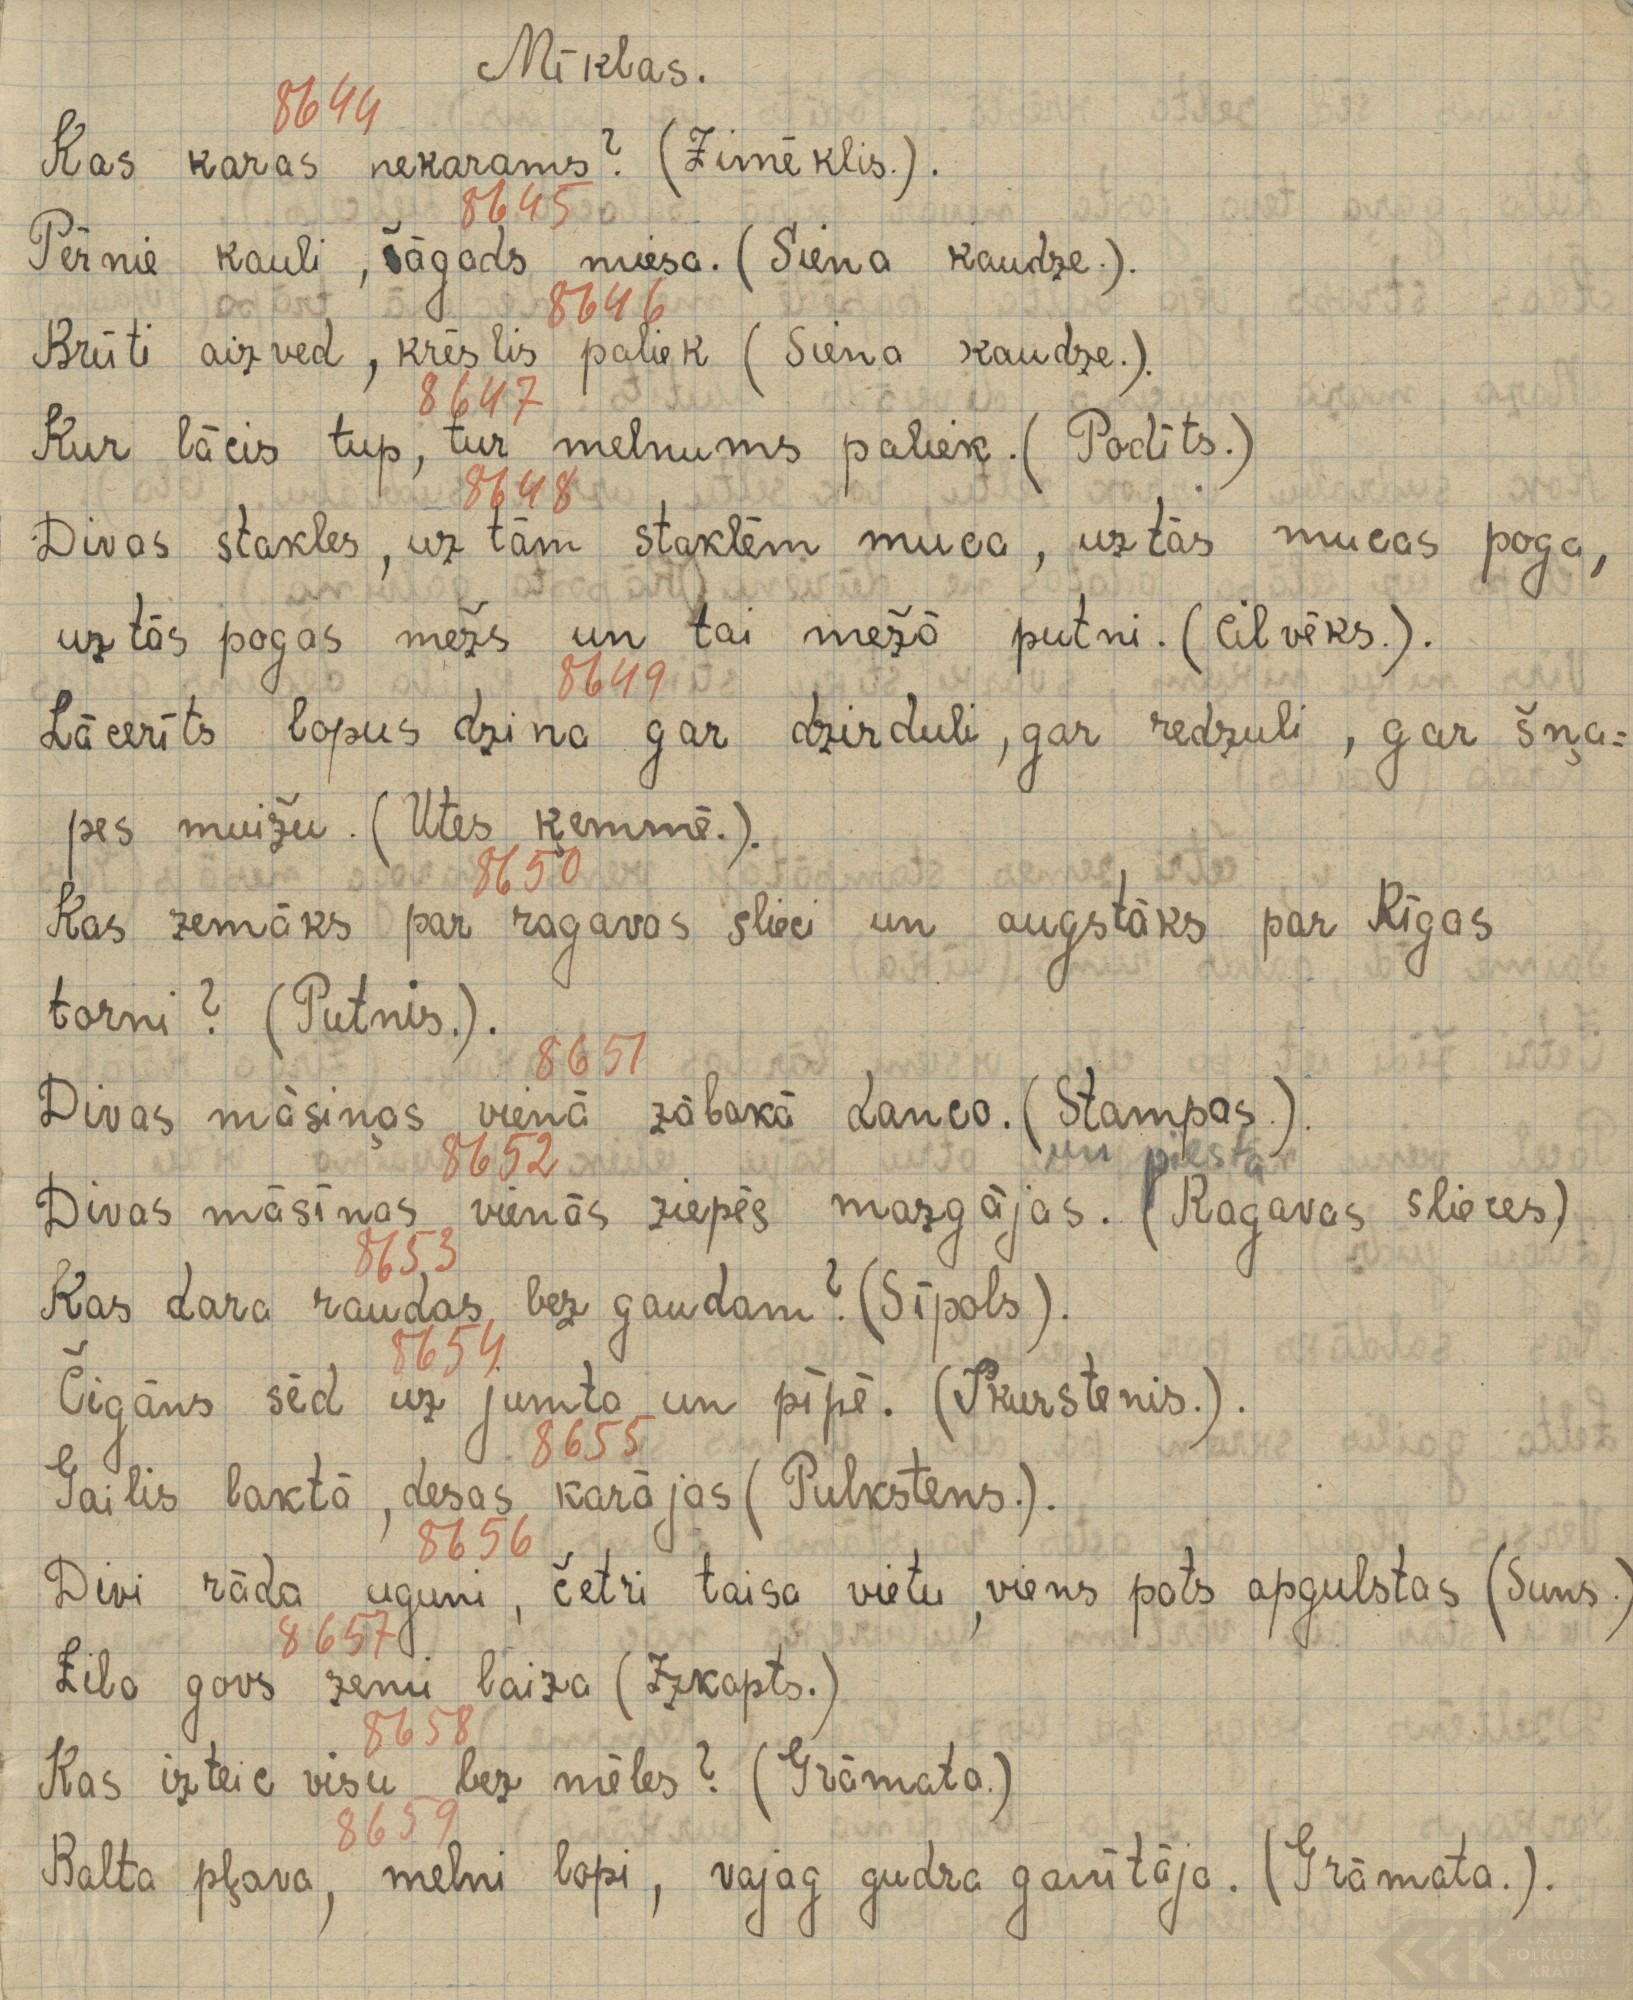 Mīklas.
8644
Kas karas nekarams? (Zimēklis.).
8645
Pērnie kauli, šāgads miesa. (Siena kaudze.).
8646
Brūti aizved, krēslis paliek (Siena kaudze.).
8647
Kur lācis tup, tur melnums paliek. (Podīts.)
8648
Divas stakles, uz tām staklēm muca, uz tās mucas poga,
uz tās pogas mežs un tai mežā putni. (Cilvēks.).
8649
Lācerīts lopus dzina gar dzirduli, gar redzuli, gar šņa=
pes muižu. (Utes ķemmē.).
8650
Kas zemāks par ragavas slieci un augstāks par Rīgas
torni? (Putnis.).
8651
Divas māsiņas vienā zābakā danco. (Stampas.).
un piesta
8652
Divas māsīnas vienās ziepēs mazgājas. (Ragavas slieces)
8653
Kas dara raudas bez gaudam? (Sīpols).
8654
Čigāns sēd uz jumta un pīpē. (Skurstenis.).
8655
Gailis laktā, desas karājas (Pulkstens.).
8656
Divi rāda uguni, četri taisa vietu, viens pats apgulstas (Suns.)
8657
Zila govs zemi laiza (Izkapts.)
8658
Kas izteic visu bez mēles? (Grāmata.)
8659
Balta pļava, melni lopi, vajag gudra ganītāja. (Grāmata.).
LATVIEŠU
FOLKLORAS
KRĀTUVE